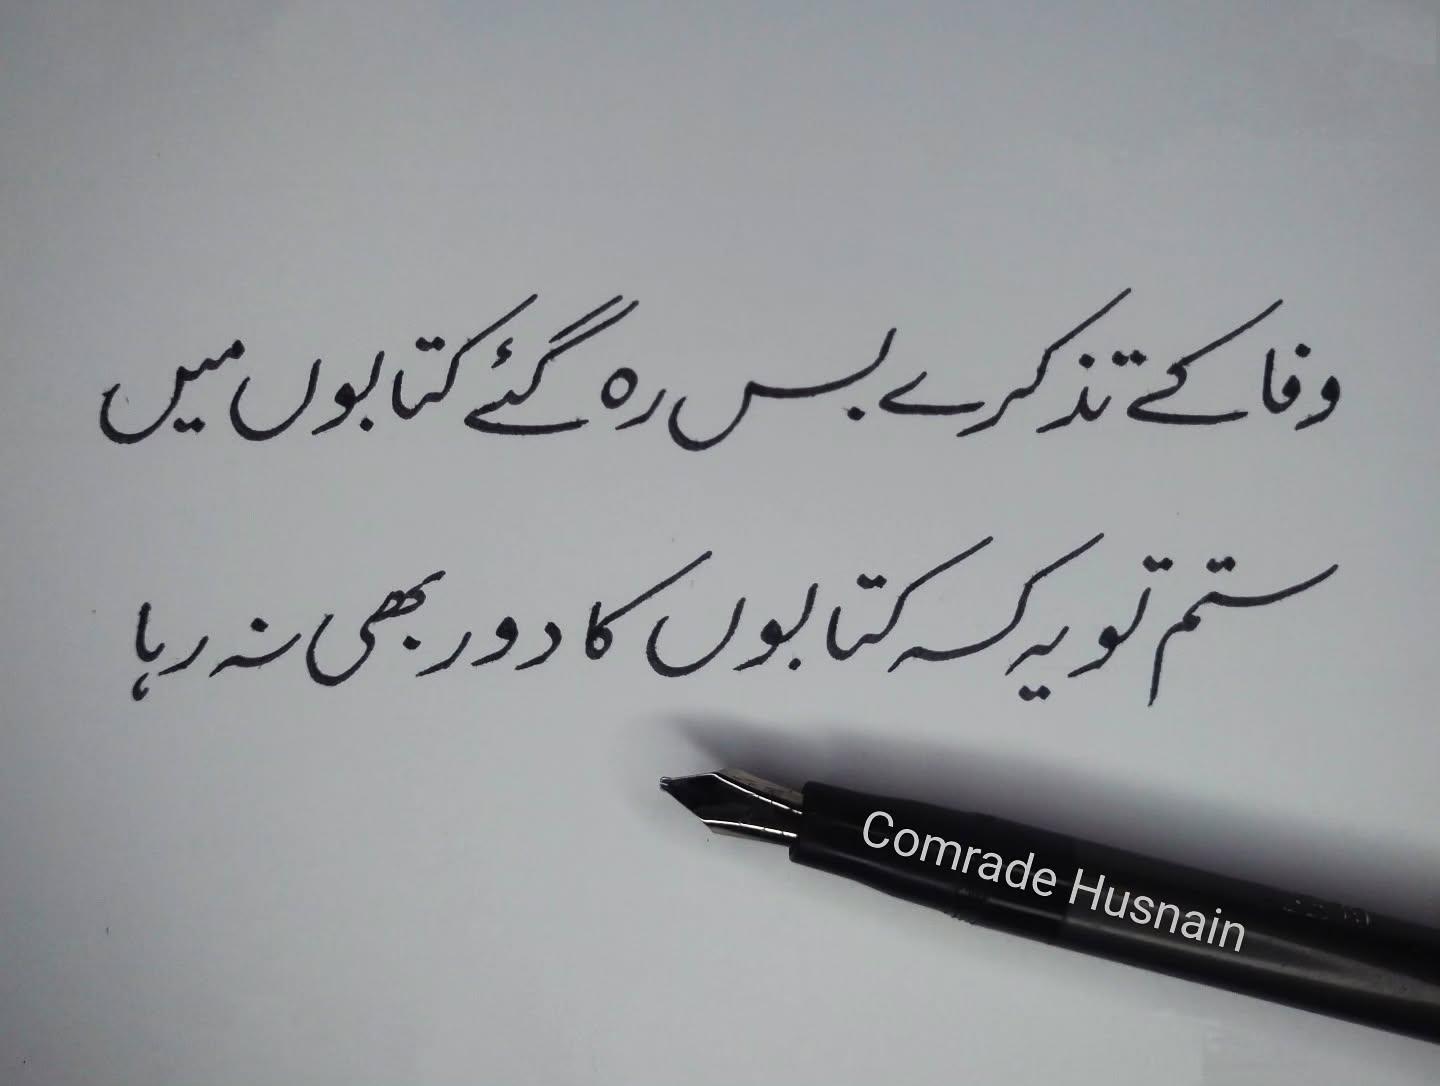 وفا کے تذکرے بس رہ گئے کتابوں میں
ستم تو یہ کہ کتابوں کا دور بھی نہ رہا
Comrade Husnain